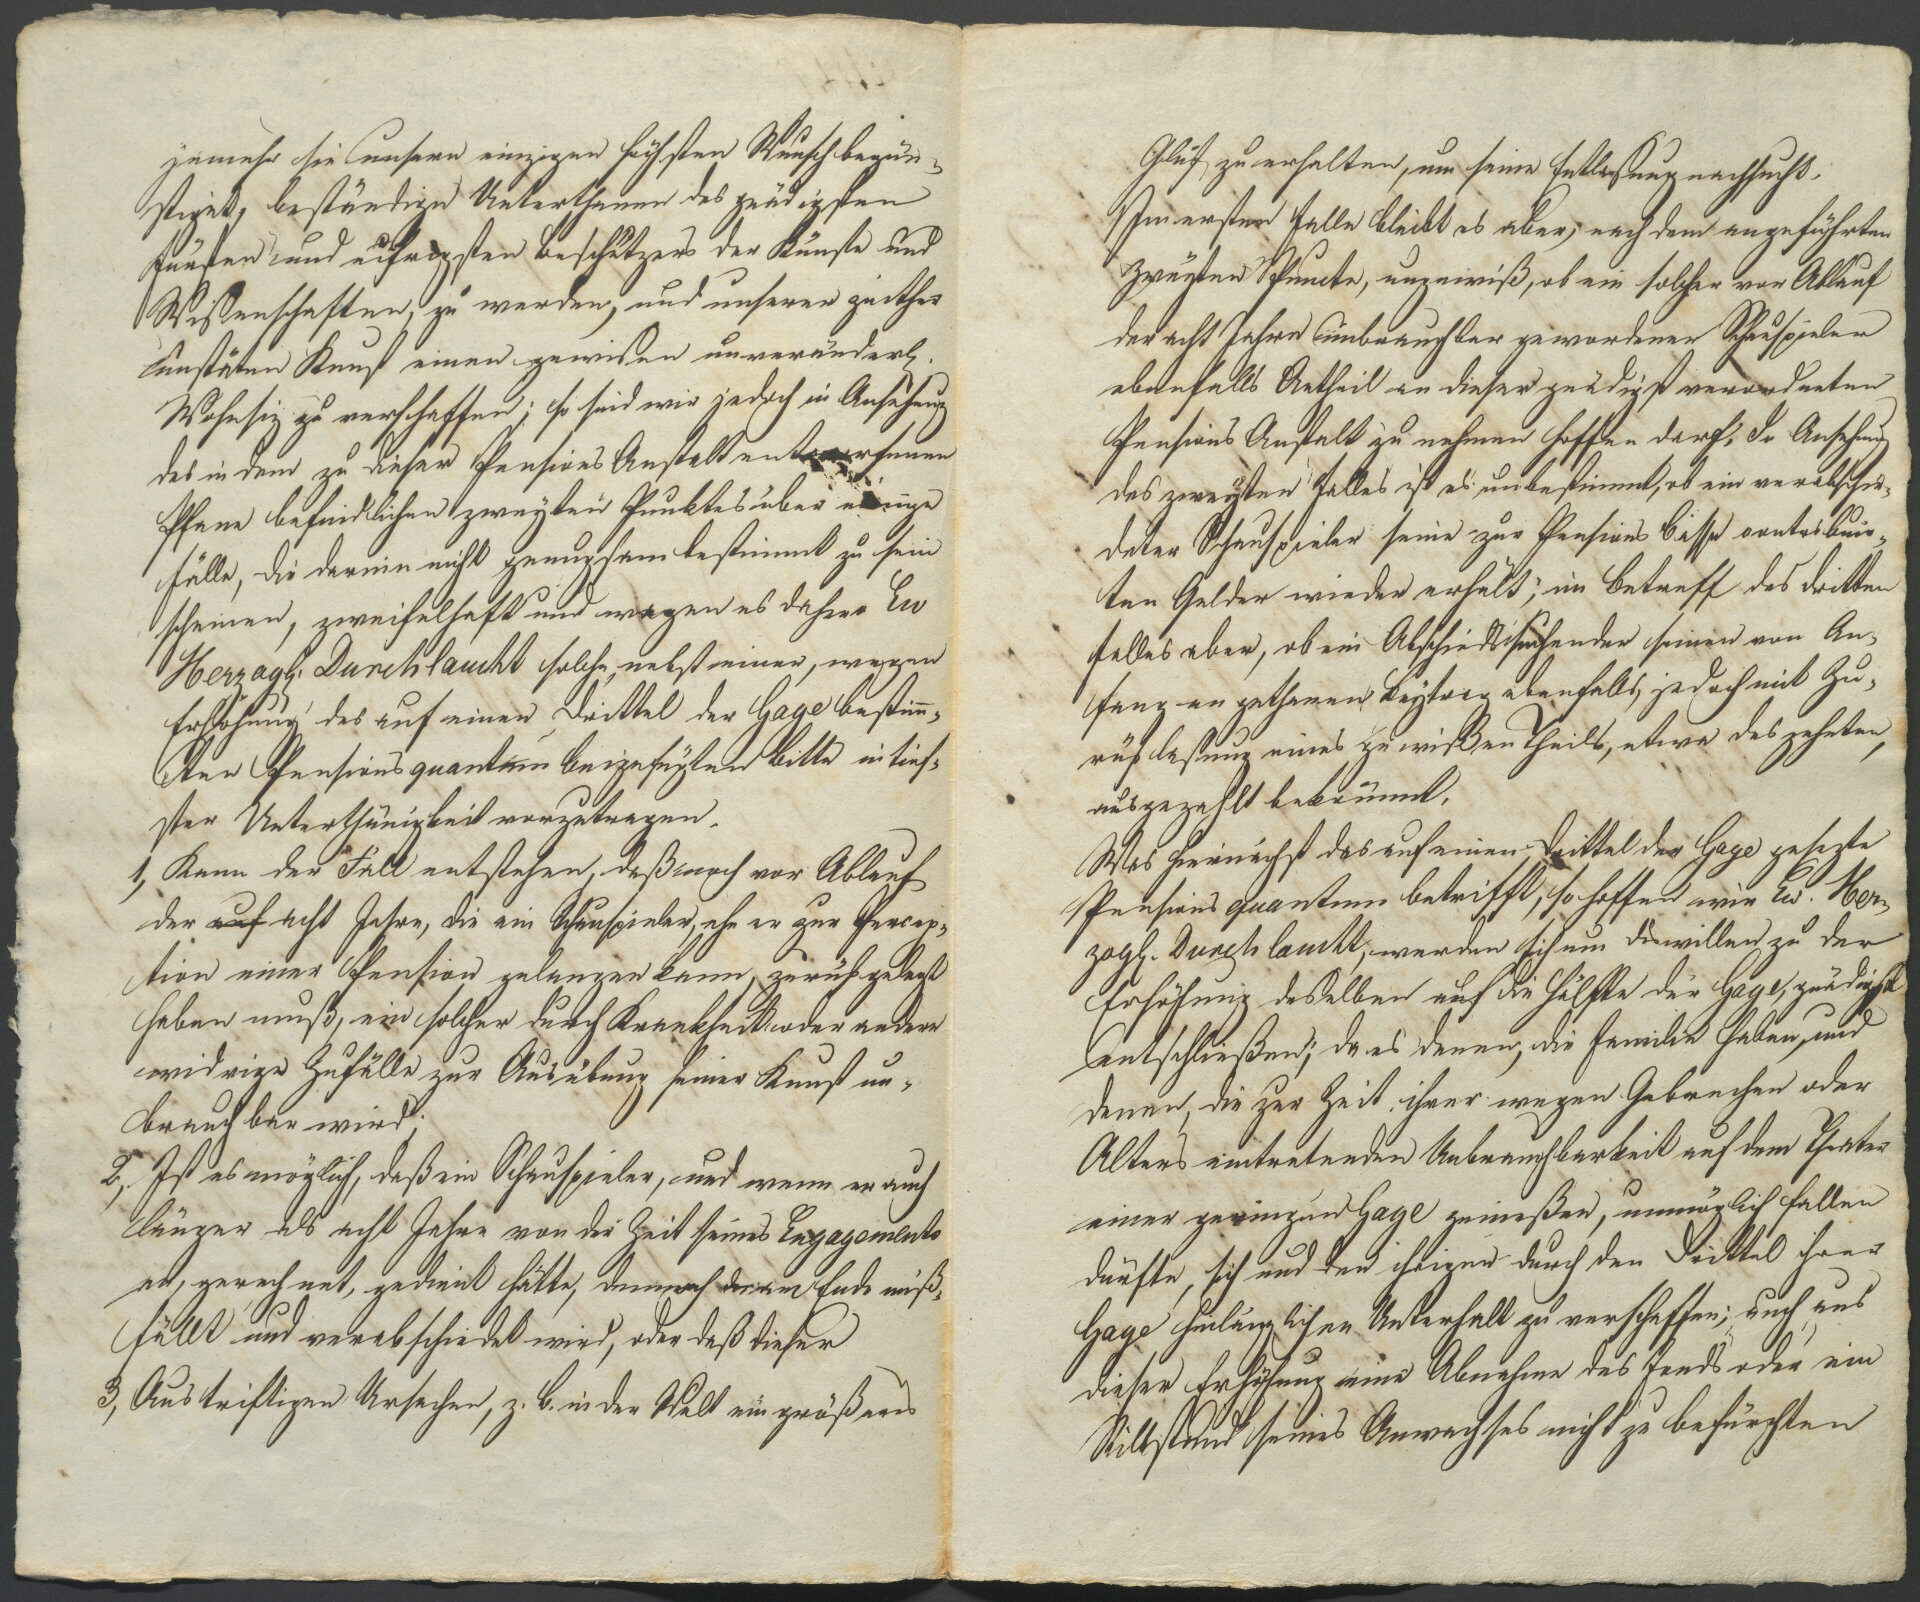 jemehr sie unsern einzigen höchsten Wunsch begün-
stiget, beständige Unterthanen des gnädigsten
Fürsten und eifrigsten Beschützers der Künste und
Wissenschaften, zu werden, und unserer zeither
unstäten Kunst einen gewissen unveränderl.
Wohnsiz zu verschaffen; so sind wir jedoch in Ansehung
des in dem zu dieser Pensions Anstalt entworfenen
Plane befindlichen zweyten Punktes über einige
Fälle, die darinn nicht genugsam bestimmt zu sein
scheinen, zweifelhaft und wagen es daher Ew
Herzogl. Durchlaucht solche, nebst einer, wegen
Erhöhung des auf einen Drittel der Gage bestim-
ten Pensions quantum beigefügten Bitte in tief-
ster Unterthänigkeit vorzutragen.
1, Kann der Fall entstehen, daß noch vor Ablauf
der auf acht Jahre, die ein Schauspieler, ehe er zur Percep-
tion einer Pension gelangen kann, zurükgelegt
haben muß, ein solcher durch Krankheit oder andere
widrige Zufälle zur Ausübung seiner Kunst un-
brauchbar wird;
2, Ist es möglich, daß ein Schauspieler, und wenn er auch
länger als acht Jahre von der Zeit seines Engagements
an, gerechnet, gedient hätte, dennoch am Ende miß-
fällt und verabschiedet wird, oder daß dieser
3, Aus triftigen Ursachen, z. B. in der Welt ein größeres
Glük zu erhalten, um seine Entlaßung nachsucht.
Im ersten Falle bleibt es aber, nach dem angeführten
zweyten Puncte, ungewiß, ob ein solcher vor Ablauf
der acht Jahre unbrauchbar gewordener Schauspieler
ebenfalls Antheil an dieser gnädigst verordneten
Pensions Anstalt zu nehmen hoffen darf. In Ansehung
des zweyten Falles ist es unbestimmt, ob ein verabschie-
deter Schauspieler seine zur Pensions Casse contribuir-
ten Gelder wieder erhält; im Betreff des dritten
Falles aber, ob ein Abschiedsuchender seinen von An-
fang an gethanen Beytrag ebenfalls, jedoch mit Zu-
rüklaßung eines gewißen Theils, etwa des zehnten,
ausgezahlt bekommt.
Was hiernächst das auf einen Drittel der Gage gesezte
Pensions quantum betrifft, so hoffen wir Ew. Her-
zogl. Durchlaucht, werden sich um deswillen zu der
Erhöhung desselben auf die Hälfte der Gage, gnädigst
entschließen; da es denen, die Familie haben, und
denen, die zur Zeit ihrer wegen Gebrechen oder
Alters eintretenden Unbrauchbarkeit auf dem Theater
einer geringern Gage genießen, unmöglich fallen
dürfte, sich und den ihrigen durch den Drittel ihrer
Gage hinlänglichen Unterhalt zu verschaffen; auch aus
dieser Erhöhung eine Abnahme des Fonds oder ein
Stillstand seines Anwachses nicht zu befürchten